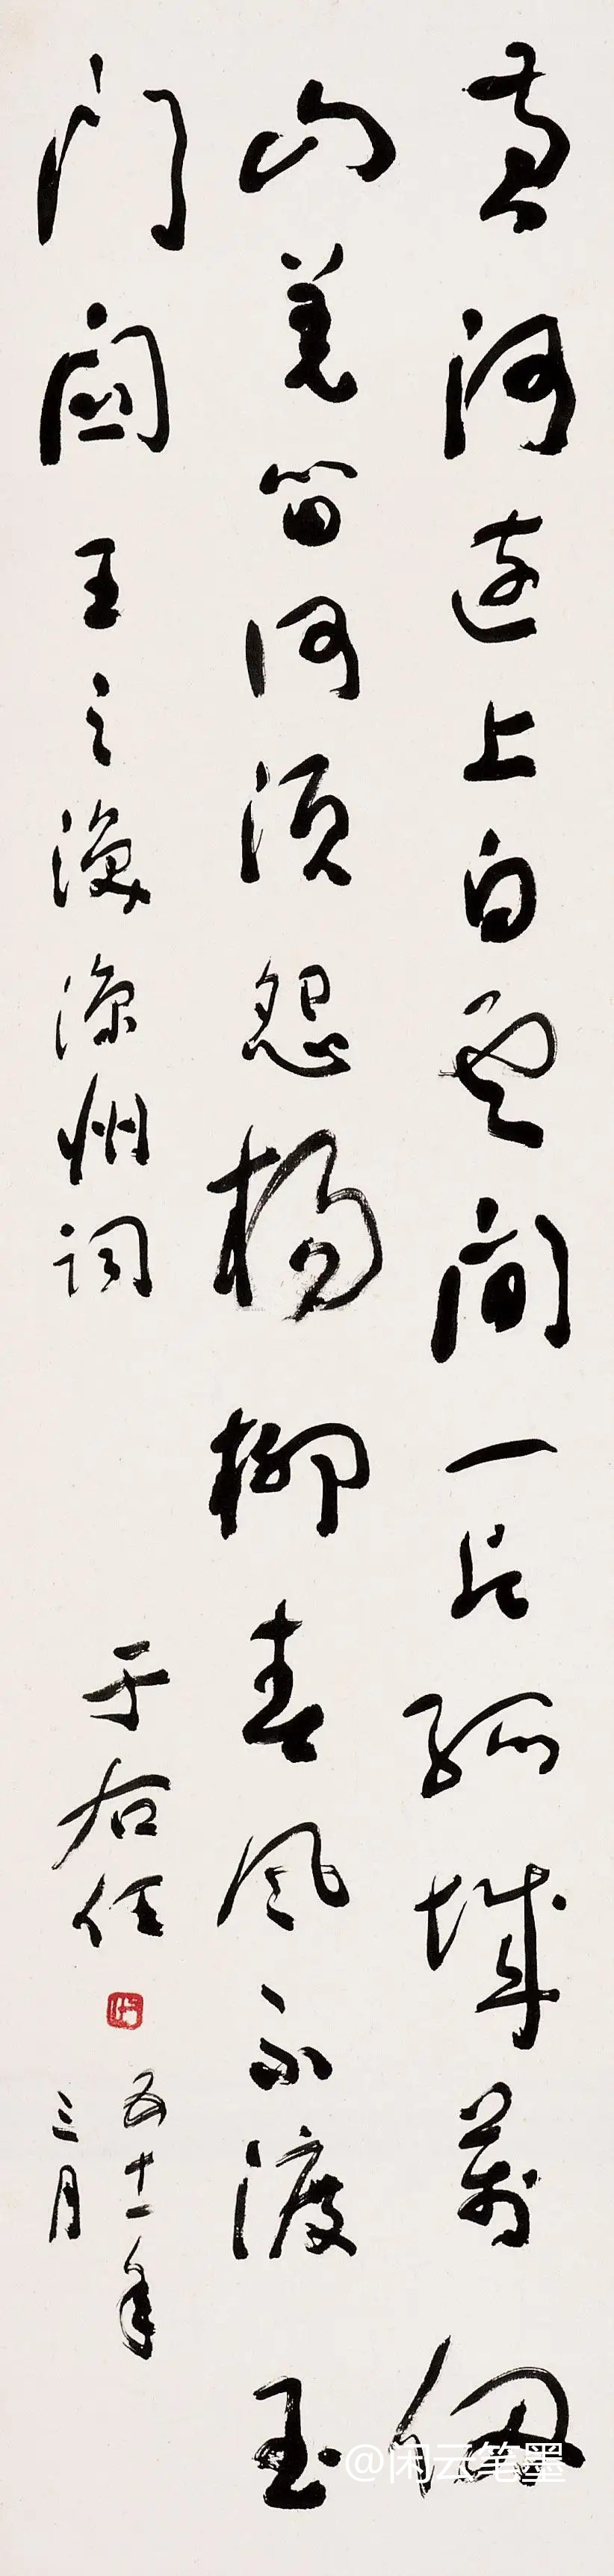 黄河远上白云间一片孤城萬仞
山羌笛何须怨楊柳春风不渡玉
门関王之渙涼州词
于右任
五十一年
三月
@闲云笔墨